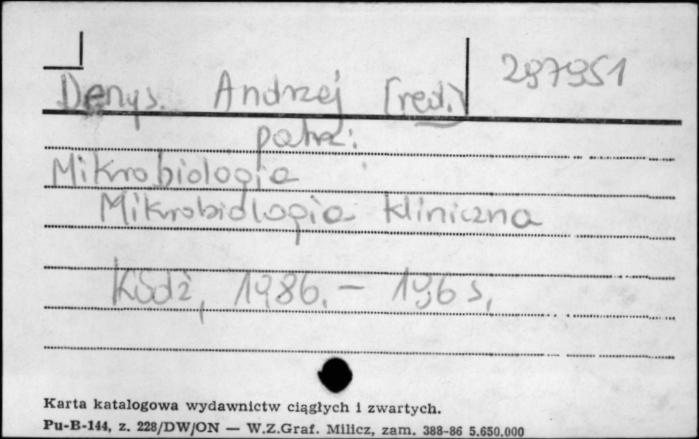 297951
Denys. Andrzej [red.]
patrz:
Mikrobiologia
Mikrobiologia kliniczna
Łódź, 1986. - 196 s.
Karta katalogowa wydawnictw ciągłych i zwartych.
Pu-B-144, z. 228/DW/ON — W.Z.Graf. Milicz, zam. 388-86 5.650.000